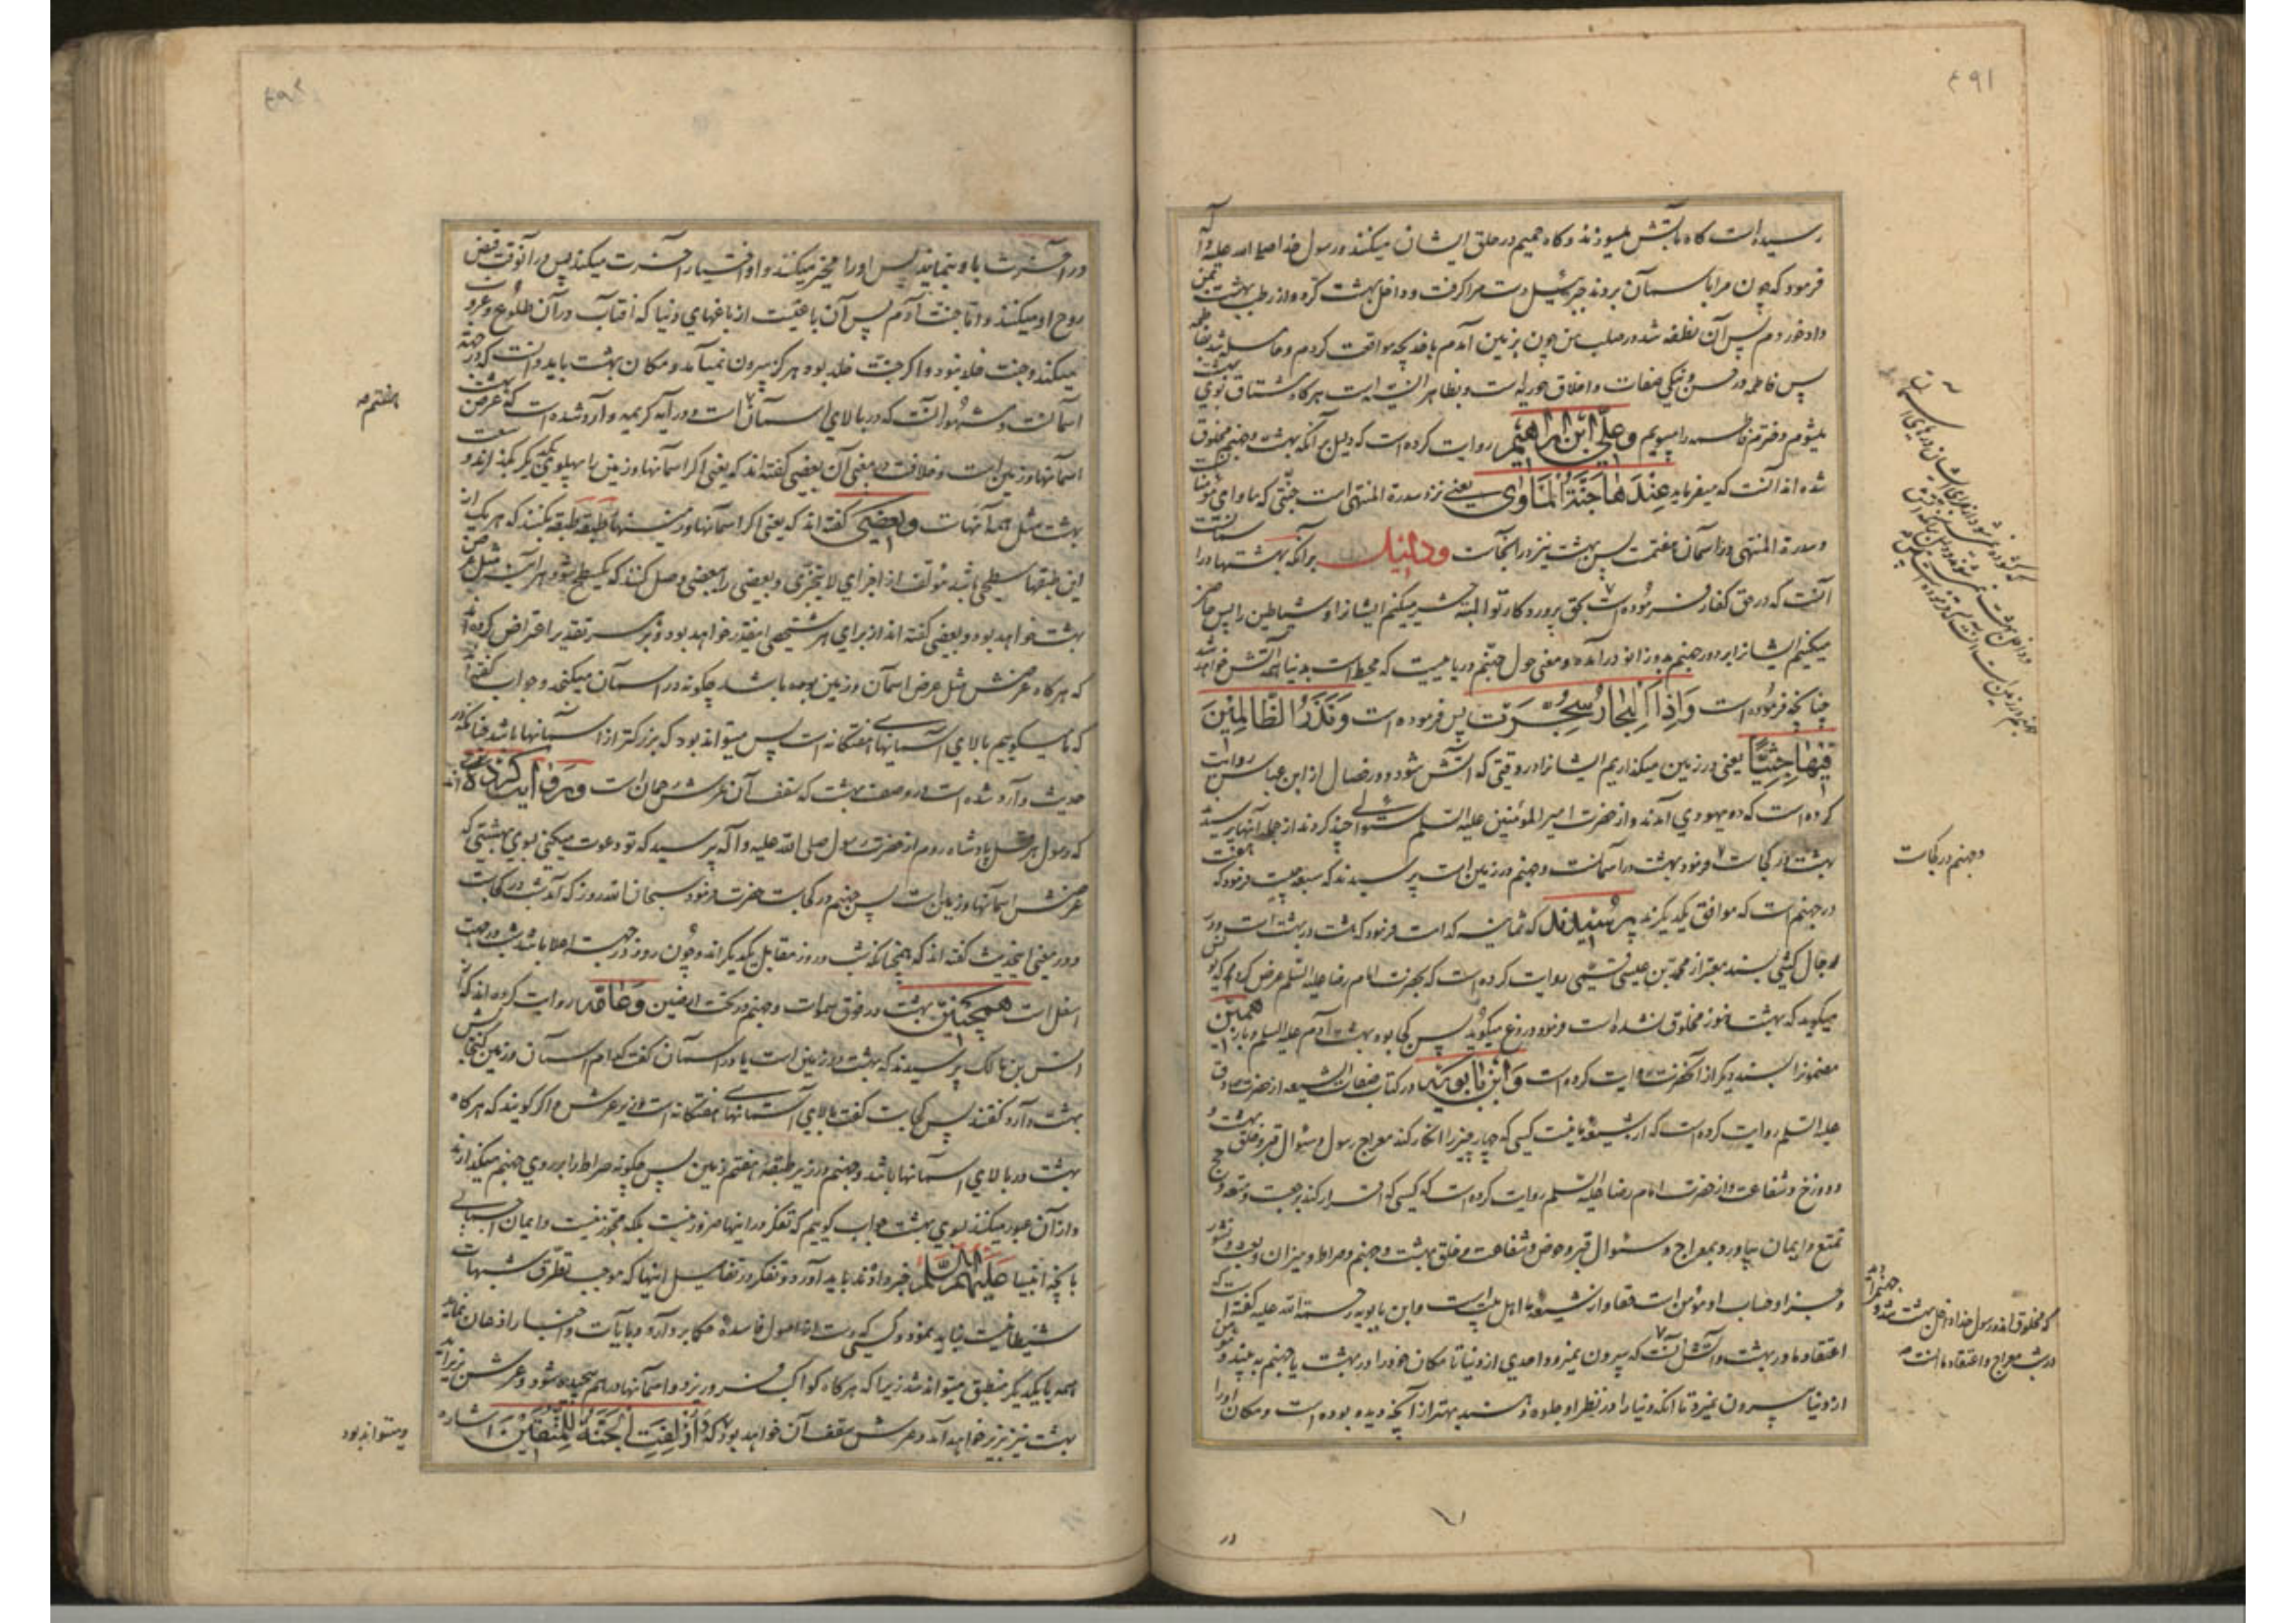 ۴۹۱
رسیده است کاه بآتش میسوزند و کاه حمیم در حلق ایشان میکنند و رسول خدا صلی الله علیه و آله
فرمود که چون مرا باسمان بردند جبرئیل دست مرا کرفت و داخل بهشت کرد و از رطب بهشت بمن
داد خوردم پس آن نطفه شد در صلب من چون بزمین آمدم با خدیجه مواقعت کردم و حامله شد بفاطمه
پس فاطمه در حسن و نیکی صفات و اخلاق حوریه است و بظاهر انسیه است هرکاه مشتاق بوی بهشت
میشوم دخترم فاطمه را میبویم و علی ابن ابراهیم روایت کرده است که دلیل بر آنکه بهشت و جهنم مخلوق
شده اند آنست که میفرماید عندها جنة الماوی یعنی نزد سدرة المنتهی است جنتی که ماوای مؤمنان است
و سدرة المنتهی در اسمان هفتمست پس بهشت نیز در آنجاست و دلیل بر آنکه بهشتها در اسمانست
آنست که در حق کفار فرموده است بحق پروردکار تو البته حشر میکنم ایشانرا و شیاطین را پس حاضر
میکنیم ایشانرا بر دور جهنم بدو زانو در آمده و معنی حول جهنم دریاییست که محیط است بدنیا همه آتش خواهد شد
چنانکه فرموده است و اذا البحار سجرت پس فرموده است و نذر الظالمین
فیها جثیا یعنی در زمین میکذاریم ایشانرا در وقتی که آتش شود و در خصال از ابن عباس روایت
کرده است که دو یهودی آمدند و از حضرت امیر المؤمنین علیه السلم سئوالی چند کردند از جمله آنها پرسیدند
بهشت در کجاست فرمود بهشت در اسمانست و جهنم در زمین است پرسیدند که سبعه چیست فرمود که هفت
در جهنم است که موافق یکدیکرند پرسیدند که ثمانیه کدامست فرمود که هشت در بهشت است و در
رجال کشی بسند معتبر از محمد بن عیسی قمی روایت کرده است که بحضرت امام رضا علیه السلم عرض کرد
میکوید که بهشت هنوز مخلوق نشده است فرمود دروغ میکوید پس کجا بود بهشت آدم علیه السلم و باز همین
مضمونرا بسند دیکر از آنحضرت روایت کرده است و ابن بابویه در کتاب صفات الشیعه از حضرت صادق
علیه السلم روایت کرده است که از شیعه ما نیست کسی که چهار چیز را انکار کند معراج رسول و سئوال قبر و خلق بهشت و
دوزخ و شفاعت و از حضرت امام رضا علیه السلم روایت کرده است که کسی که اقرار کند برجعت و متعه و حج
تمتع و ایمان بیاورد بمعراج و سئوال قبر و حوض و شفاعت و خلق بهشت و جهنم و صراط و میزان و بعث و نشور
و جزا و حساب او مؤمن است حقا و از شیعه ما اهل بیت است و ابن بابویه رحمة الله علیه کفته است که
اعتقاد ما در بهشت و آتش آنست که بیرون نمیرود احدی از دنیا تا مکان خود را در بهشت یا جهنم به بیند و
از دنیا بیرون نمیرود تا آنکه دنیا را در نظر او جلوه دهند بهتر از آنچه دیده بوده است و مکان او را
در
و جهنم در کجاست
که مخلوق اند و رسول خدا داخل بهشت شد و جهنم را دید
در شب معراج و اعتقاد ما آنست
در آخرت باو بنمایند پس او را مخیر میکنند و او اختیار آخرت میکند پس در آنوقت قبض
روح او میکنند و اما جنت آدم پس آن باغیست از باغهای دنیا که افتاب در آن طلوع و غروب
میکند و جنت خلد نبود و اکر جنت خلد بود هرکز بیرون نمیآمد و مکان بهشت باید دانست که در جهة
اسمانست و مشهور آنست که در بالای اسمان است و در آیه کریمه وارد شده است که عرض بهشت
اسمانها و زمین است و خلافست در معنی آن بعضی کفته اند که یعنی اکر اسمانها و زمین را بپهلوی یکدیکر بکذارند وسعت
بهشت مثل همه آنهاست و بعضی کفته اند که یعنی اکر اسمانها و زمینها طبقه طبقه بکنند که هر یک از
این طبقها سطحی باشد مؤلف از اجزای لا یتجزی و بعضی را ببعضی وصل کنند که یکسطح شود هر آینه مثل عرض
بهشت خواهد بود و بعضی کفته اند از برای هر شخصی اینقدر خواهد بود و بر هر تقدیر اعتراض کرده اند
که هرکاه عرضش مثل عرض اسمان و زمین بوده باشد چکونه در اسمان میکنجد و جواب کفته اند
که ما میکوییم بالای آسمانهای هفتکانه است پس میتواند بود که بزرکتر از آسمانها باشد چنانکه در
حدیث وارد شده است در وصف بهشت که سقف آن عرش رحمان است و روایت کرده اند
که رسول هرقل پادشاه روم از حضرت رسول صلی الله علیه و آله پرسید که تو دعوت میکنی بسوی بهشتی که
عرضش اسمانها و زمین است پس جهنم در کجاست حضرت فرمود سبحان الله روز که آمد شب در کجاست
و در معنی اینحدیث کفته اند که همچنانکه شب و روز مقابل یکدیکراند و چون روز در جهت اعلا باشد شب در جهت
اسفل است همچنین بهشت در فوق سموات و جهنم در تحت ارضین و روایت کرده اند که از
انس بن مالک پرسیدند که بهشت در زمین است یا در اسمان کفت کدام اسمان و زمین کنجایش
بهشت دارد کفتند پس کجاست کفت بالای آسمانهای هفتکانه است در زیر عرش و اکر کویند که هرکاه
بهشت در بالای اسمانها باشد و جهنم در زیر طبقه هفتم زمین پس چکونه صراط را بر روی جهنم میکذارند
و از آن عبور میکنند بسوی بهشت جواب کوییم که تفکر در اینها ضرور نیست بلکه مجوز نیست و ایمان اجمالی
بآنچه انبیا علیهم السلم خبر داده اند باید آورد و تفکر در تفاصیل اینها که موجب تطرق شبهات
شیطانیست نباید نمود و کسی که دست از اصول فاسده حکما بردارد و بآیات و اخبار اذعان نماید
همه با یکدیکر منطبق میتواند شد زیرا که هرکاه کواکب فرو ریزد و اسمانها درهم پیچیده شود و عرش بزیر آید
بهشت نیز بزیر خواهد آمد و عرش سقف آن خواهد بود که و ازلفت الجنة للمتقین اشاره
هفتم
و میتواند بود